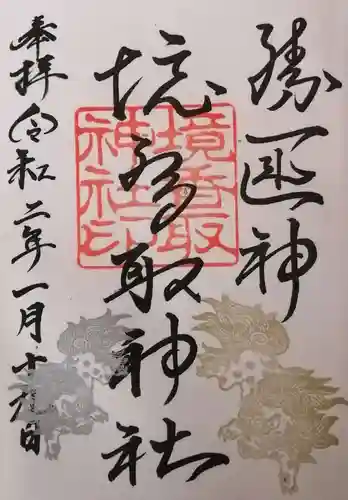 勝運神
境香取神社
境香取
神社印
奉拝 令和二年一月十九日